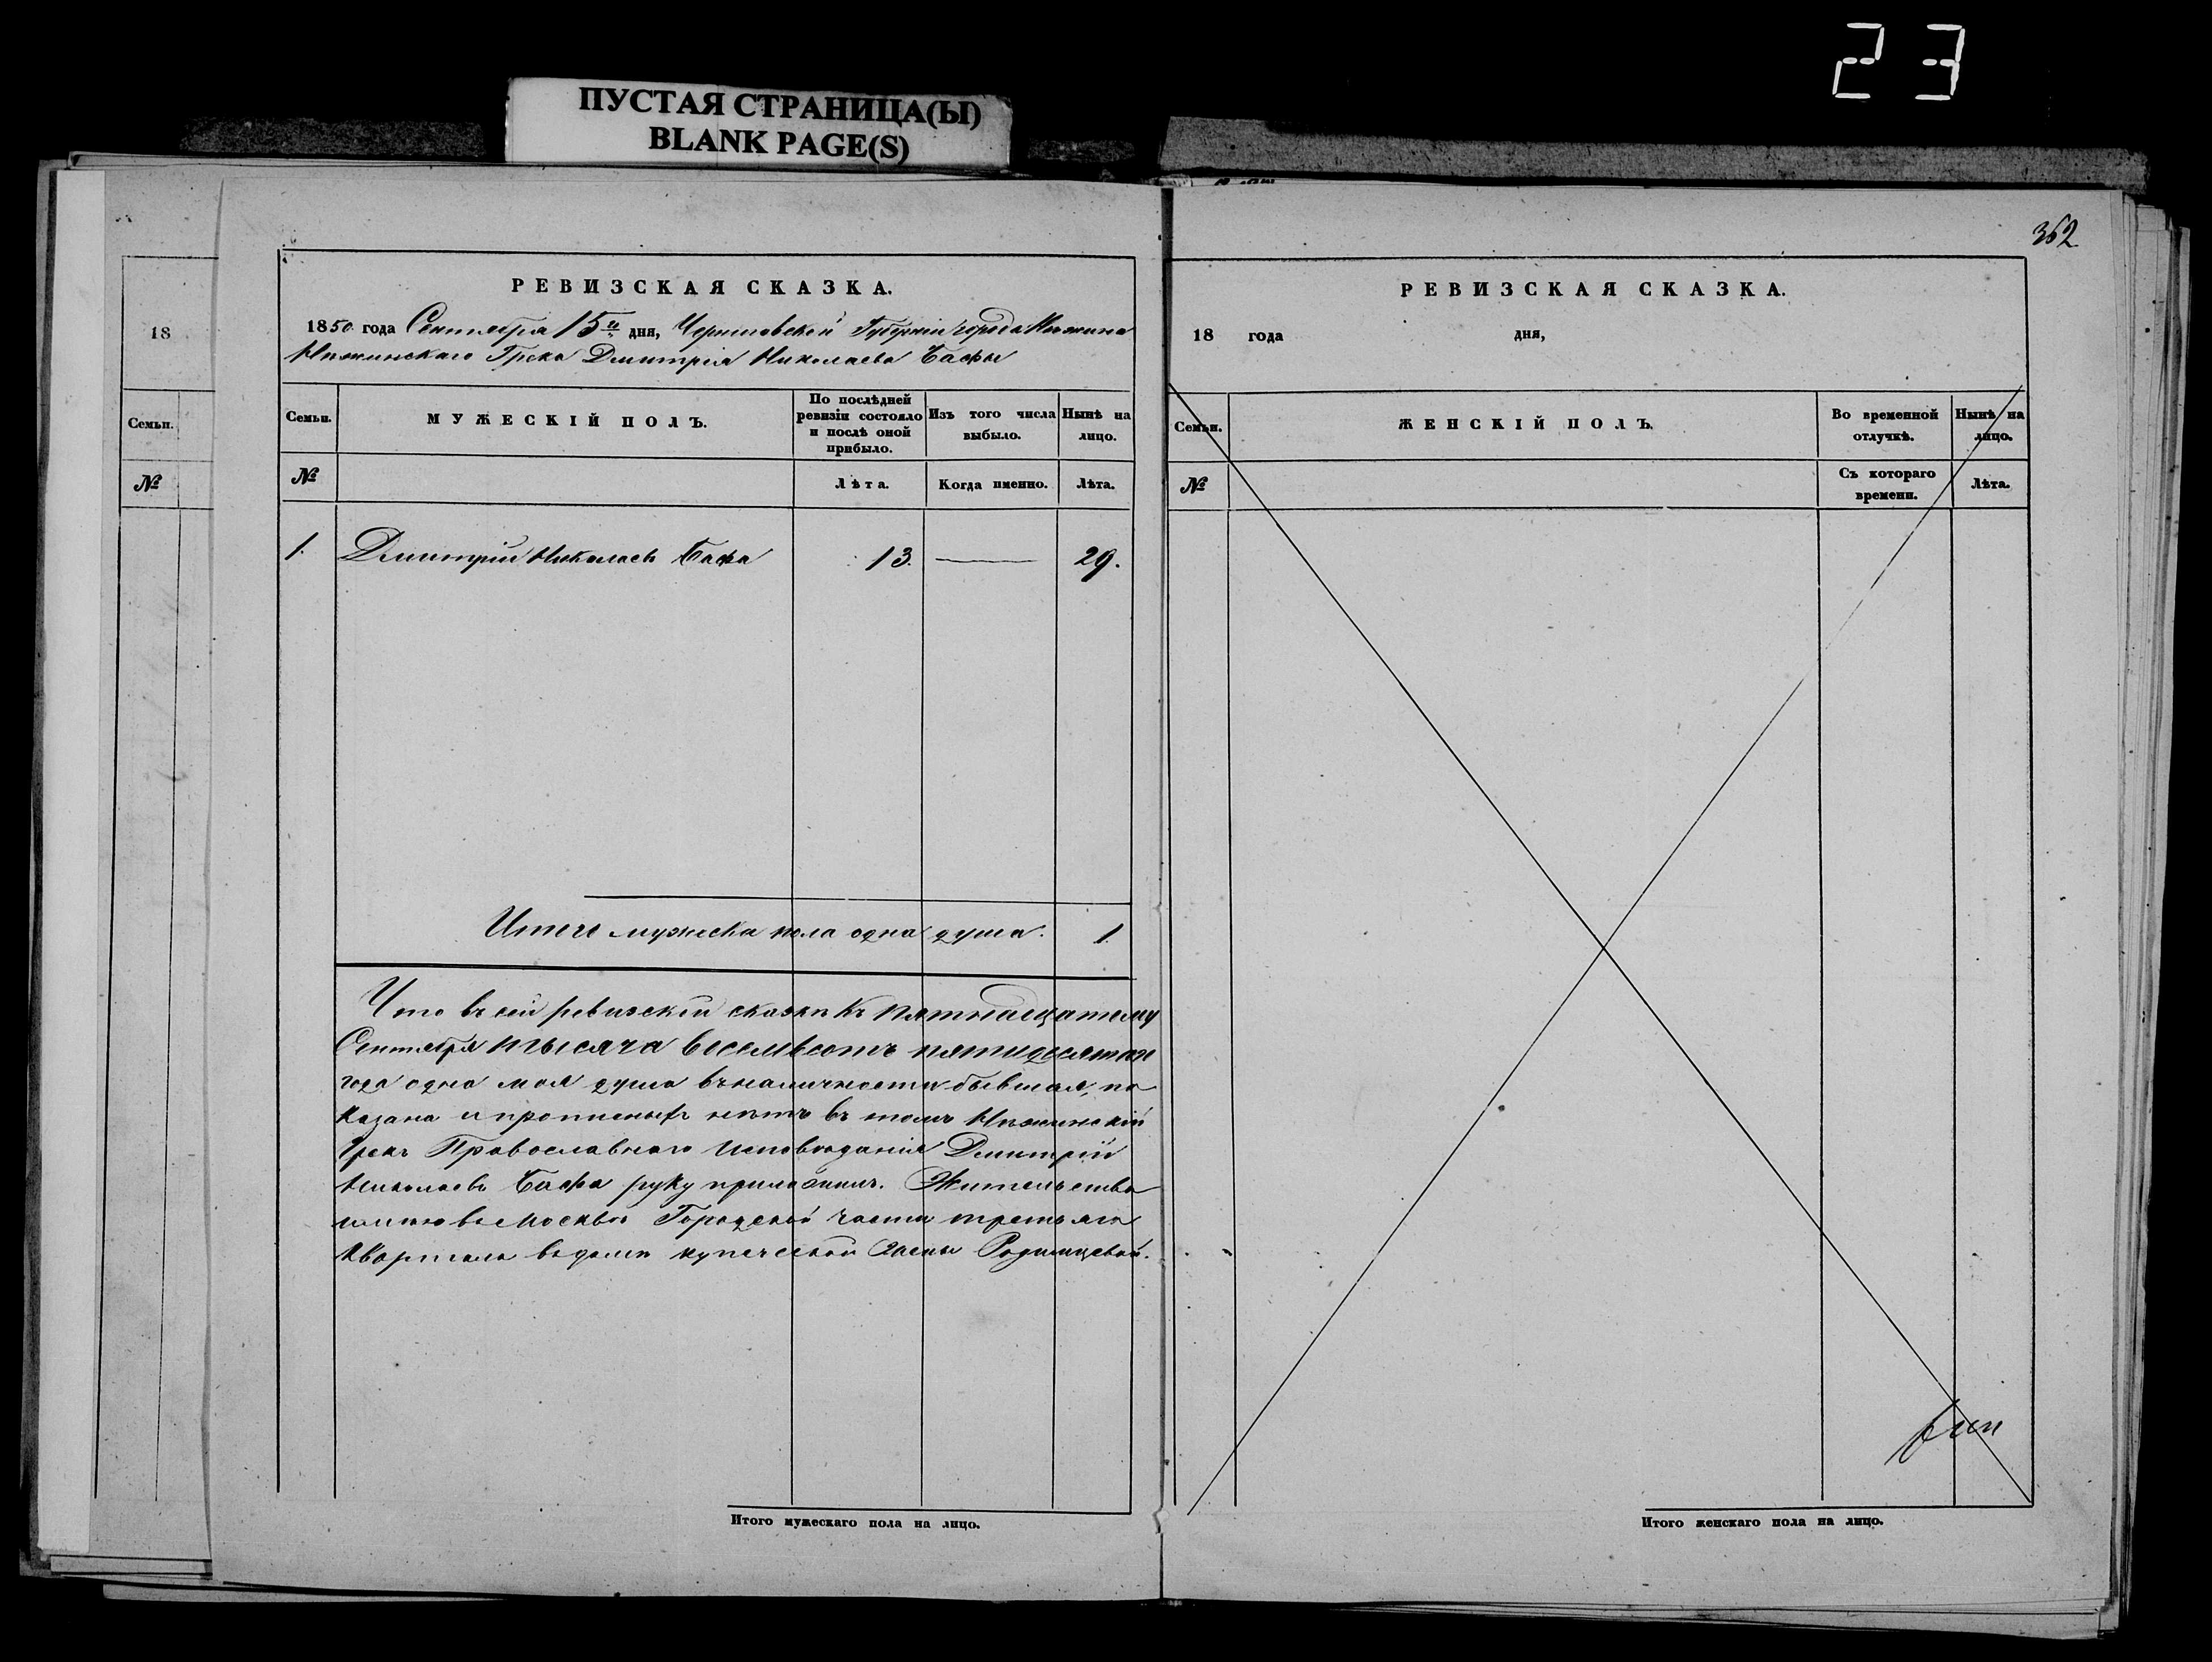 23
ПУСТАЯ СТРАНИЦА(Ы)
BLANK PAGE(S)
362
18
Семьи.
№
РЕВИЗСКАЯ СКАЗКА.
1850 года Сентября 15го дня, Черниговской Губернии города Нѣжина
Нѣжинскаго Грека Дмитрія Николаева Бафы
Семьи.
МУЖЕСКІЙ ПОЛЪ.
По послѣдней ревизіи состояло и послѣ оной прибыло.
Изъ того числа выбыло.
Нынѣ на лицо.
№
Лѣта.
Когда именно.
Лѣта.
1. Дмитрій Николаевъ Бафа 13. — 29.
Итого мужеска пола одна душа. 1.
Что въ сей ревизской сказкѣ къ пятнадцатому
Сентября тысяча восемьсотъ пятидесятаго
года одна моя душа въ наличности бывшая, по
казана и прописныхъ нѣтъ въ томъ Нѣжинскій
Грекъ Православнаго Исповѣданія Дмитрій
Николаевъ Бафа руку приложилъ. Жительство
имѣю въ Москвѣ Городской части третьяго
Квартала въ домѣ купеческой Родимцевой.
Итого мужескаго пола на лицо.
РЕВИЗСКАЯ СКАЗКА.
18 года дня,
Семьи.
ЖЕНСКІЙ ПОЛЪ.
Во временной отлучкѣ.
Нынѣ на лицо.
№
Съ котораго времени.
Лѣта.
Итого женскаго пола на лицо.